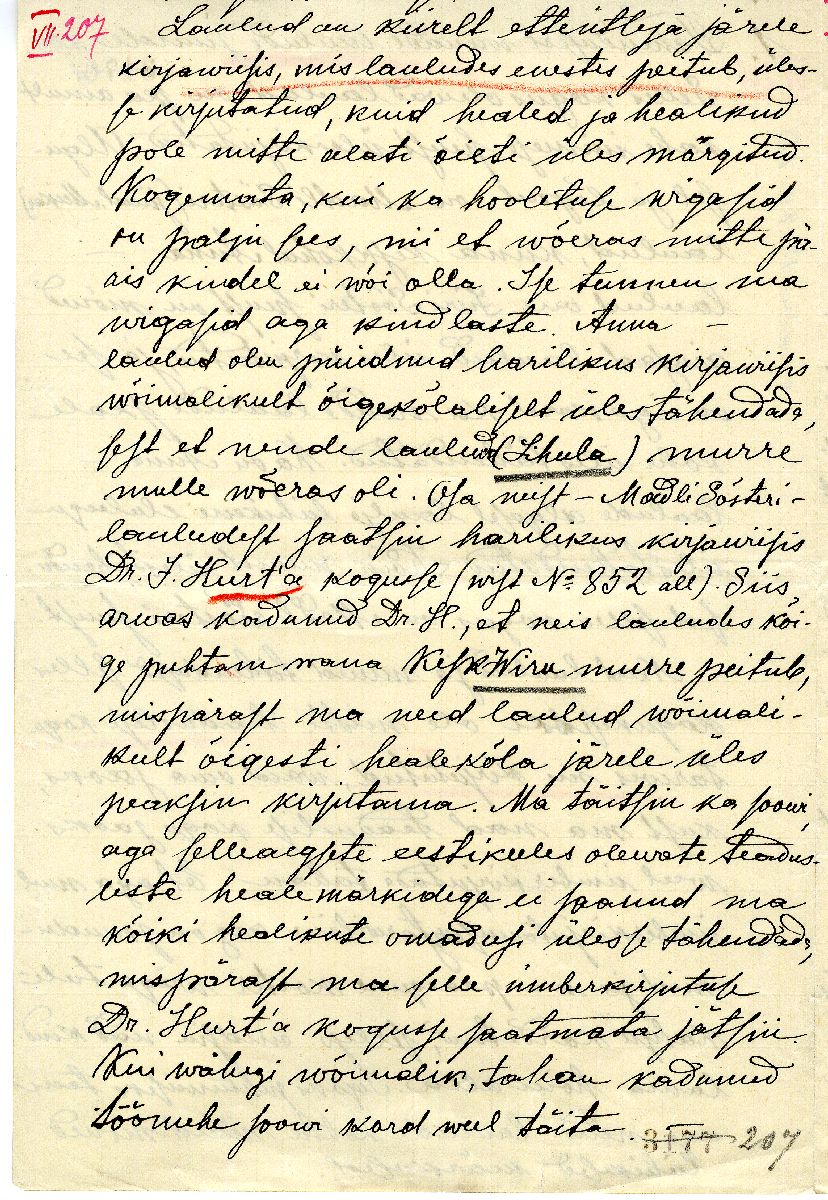 VII. 207
Laulud on kiirelt etteütleja järele
kirjawiisis, mis lauludes enestes peitub, üles-
se kirjutatud, kuid healed ja healikud
pole mitte alati õieti üles märgitud.
Kogemata, kui ka hooletuse wigasid
on palju sees, nii et wõeras mitte pä-
ris kindel ei wõi olla. Ise tunnen ma
wigasid aga kindlaste. Anna –
laulud olen püüdnud harilikus kirjawiisis
wõimalikult õigekõlaliselt üles tähendada,
sest et nende laulud (Lihula) murre
mulle wõeras oli. Osa neist – Madli Eósteri –
lauludest saatsin harilikus kirjawiisis
Dr. J. Hurt'a kogusse (wist № 852 all). Siis,
arwas kadunud Dr. H., et neis lauludes kõi-
ge puhtam wana Kesk Wiru murre peitub,
mispärast ma need laulud wõimali-
kult õigesti healekõla järele üles
peaksin kirjutama. Ma täitsin ka soowi,
aga selleaegsete eestikeeles olewate teadus-
liste healemärkidega ei saanud ma
kõiki healikute omadusi ülesse tähendada,
mispärast ma selle ümberkirjutuse
Dr. Hurt'a kogusse saatmata jätsin.
Kui wähegi wõimalik, tahan kadunud
töömehe soowi kord weel täita. –
3177 207